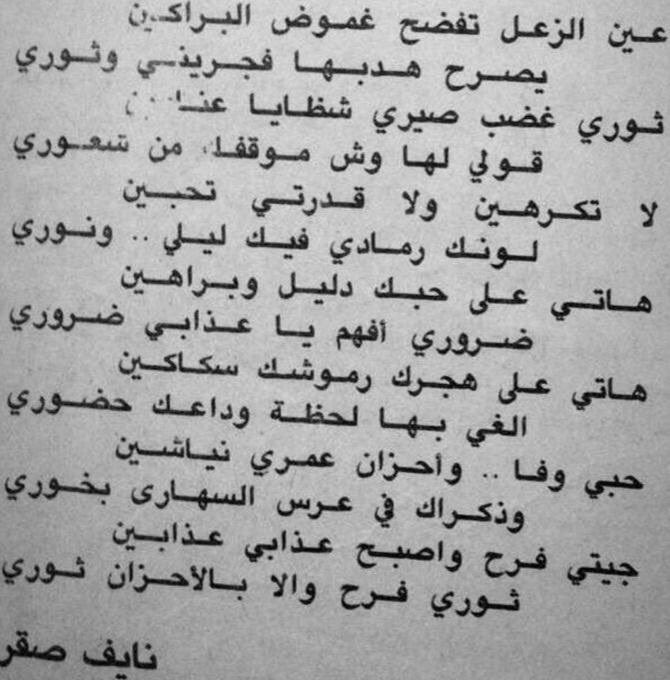 عين الزعل تفضح غموض البراكين
يصرح هدبها فجريني وثوري
ثوري غضب صيري شظايا
قولي لها وش موقفك من شعوري
لا تكرهين ولا قدرتي تحبين
لونك رمادي فيك ليلي .. ونوري
هاتي على حبك دليل وبراهين
ضروري أفهم يا عذابي ضروري
هاتي على هجرك رموشك سكاكين
الغي بها لحظة وداعك حضوري
حبي وفا .. وأحزان عمري نياشين
وذكراك في عرس السهارى بخوري
جيتي فرح واصبح عذابي عذابين
ثوري فرح والا بالأحزان ثوري
نايف صقر